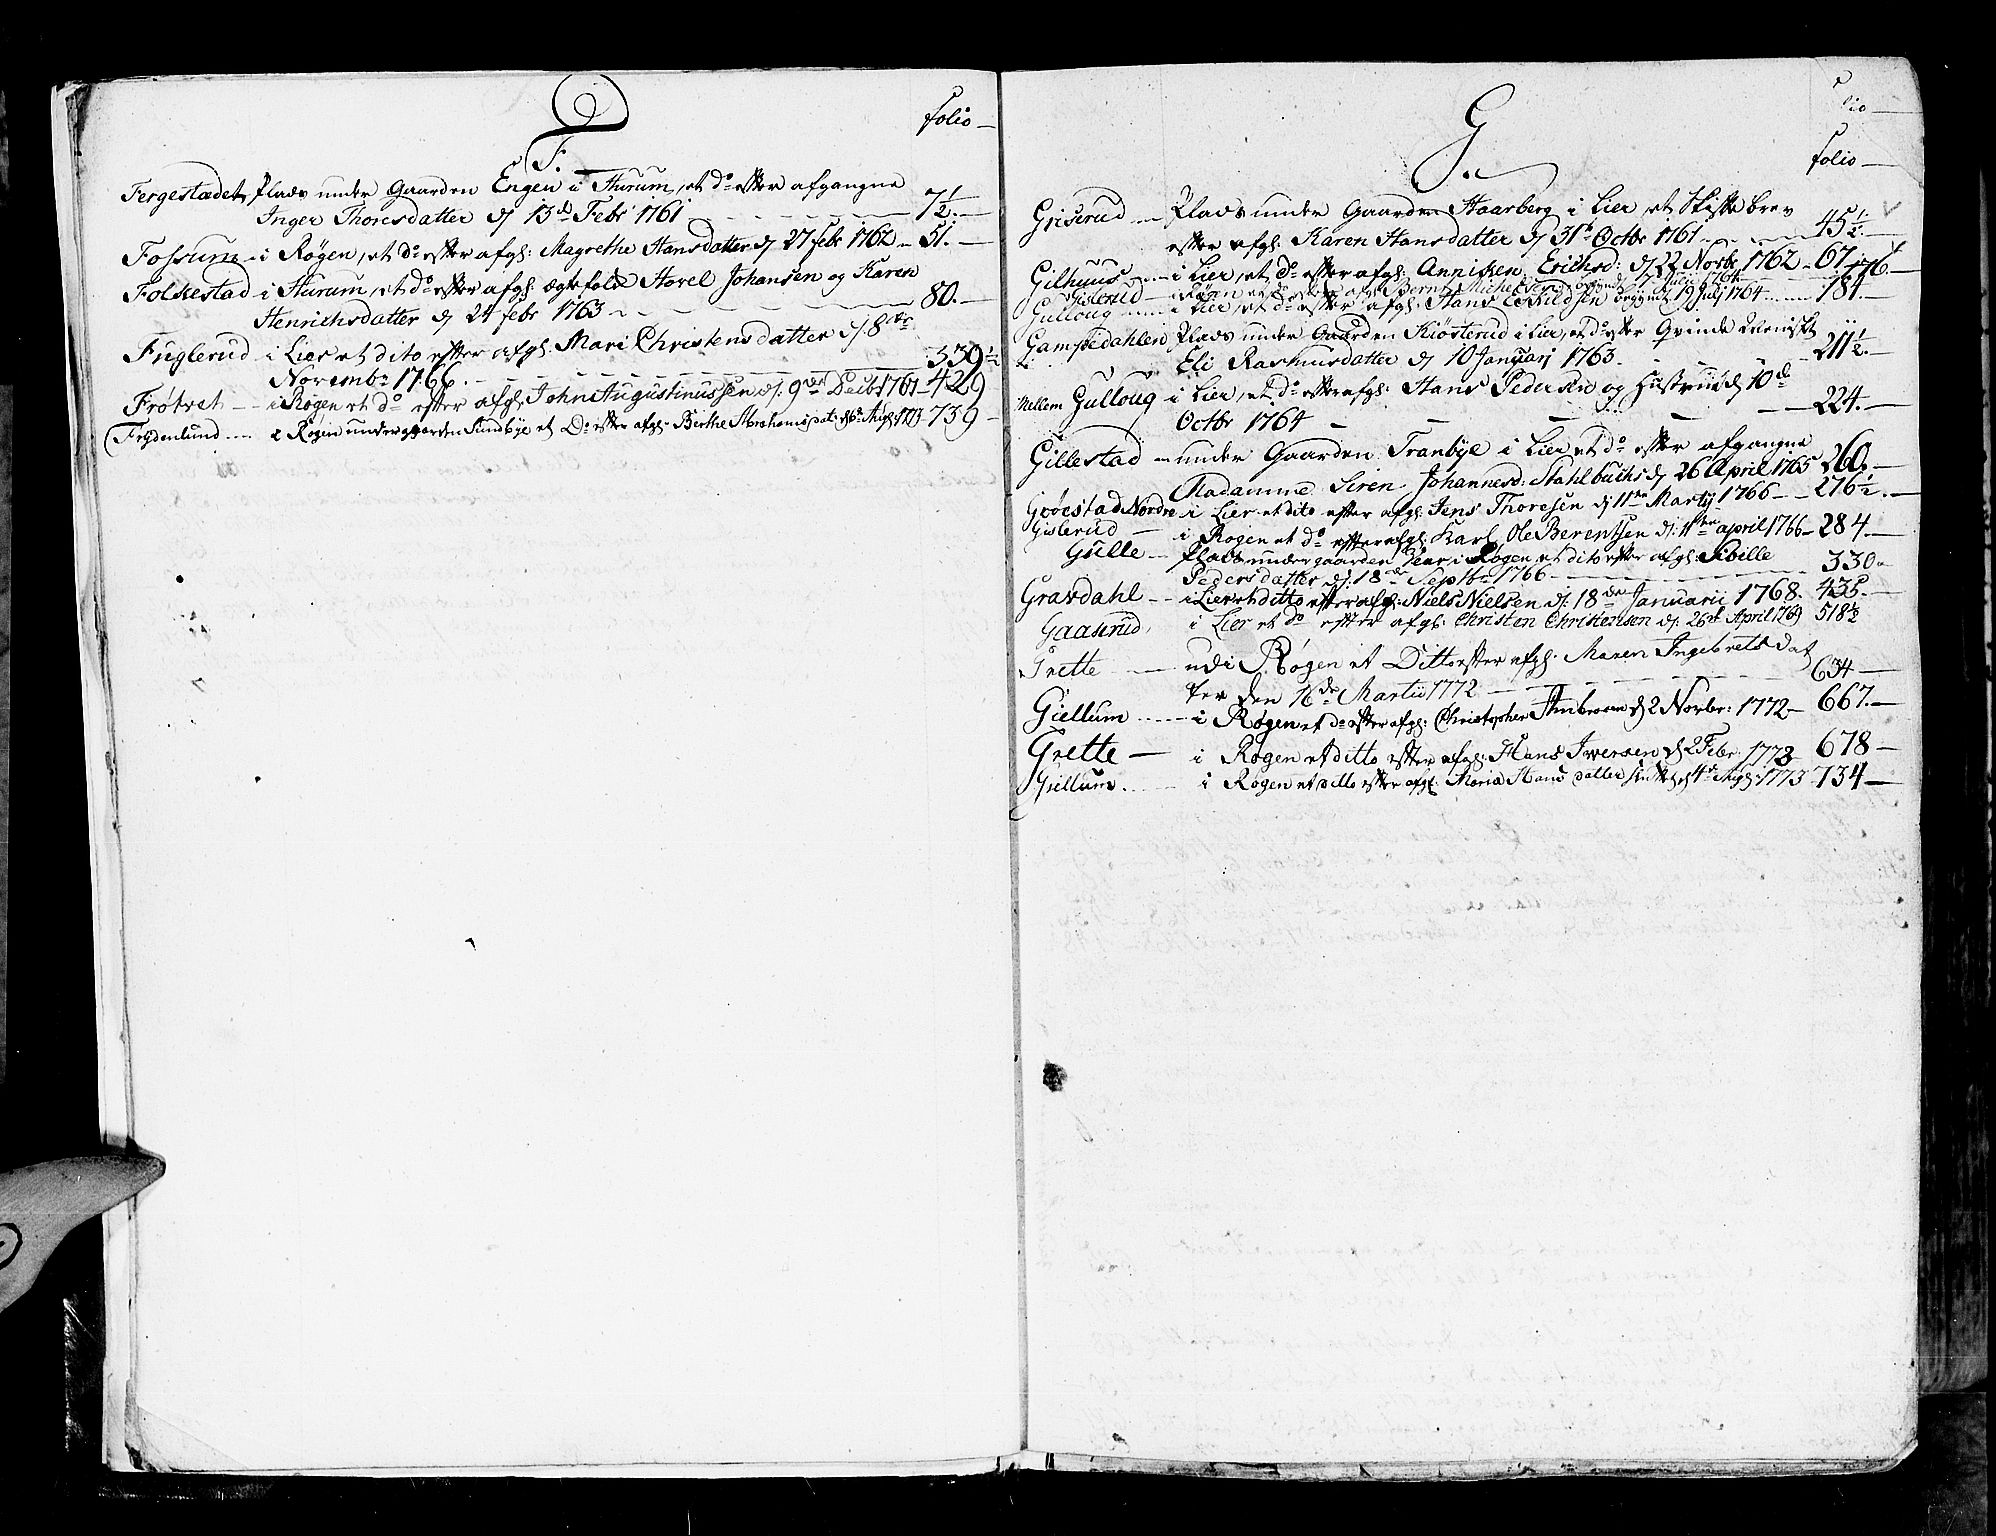 F.
folio
Fergestædet, Plads under Gaarden Engen i Hurum, et do efter afgangne
Inger Thoresdatter d 13de Febr 1761 7½.
Fossum i Røgen, et do efter afgl: Magrethe Hansdatter d 27 febr 1762 51.
Folkestad i Hurum, et do efter afgl ægtefolk Hovel Johansen og Karen
Henrichsdatter d 24 febr 1763 80.
Fuglerud i Lier et dito efter afgl: Mari Christensdatter d: 8de
Novembr 1766. 339½
Frøtvet i Røgen et do efter afgl: John Augustinussen d: 9de Decbr 1767 429
Frydenlund i Røgen under gaarden Sundbye et Do efter afgl. Berthe Abrahamsdat: d 6te Augl: 1773 739
G.
folio
Griserud Plads under Gaarden Haarberg i Lier, et Skiftebrev
efter afgl: Karen Hansdatter d 31te Octbr 1761 45½.
Gilhuus i Lier, et do efter afgl: Anniken Erichsd: d 22 Novbr 1762 67.
Gislerud i Røgen et do efter afgl Bernt Michelsen 1764 176.
Gulloug i Lier, et do efter afgl: Hans Eskildsen begynt 19 July 1764 184.
Gampedahlen Plads under Gaarden Kiøsterud i Lier, et do efter Qvinde Menisket
Eli Rasmusdatter d 10 Januarj 1763. 211½.
Mellem Gulloug i Lier, et do efter afgl: Hans Pedersen og Hustrue d 10de
Octbr 1764 224.
Gillestad under Gaarden Tranbye i Lier et do efter afgangne
Madamme Siren Johannesd: Stahlbuchs d 26 April 1765 260.
Grøestad Nordre i Lier et dito efter afgl. Jens Thoresen d 11te Martij 1766 276½.
Gislerud i Røgen et do efter afgl: Karl Ole Berentsen d: 11te april 1766 284.
Gulle Plads under gaarden i Røgen et dito efter afgl: Sibille
Pedersdatter d: 18de Septbr 1766 330.
Gravdahl i Lier et ditto efter afgl: Niels Nielsen d: 18de Januarii 1768. 435.
Gaaserud, i Lier et do efter afgl: Christen Christensen d: 26de April 1769 518½
Grette udi Røgen et Ditto efter afgl: Maren Ingebretsdat
ter den 16de Martii 1772 634
Giellum i Røgen et do efter afgl: Christopher Ambrosen d 2 Novbr: 1772 667.
Grette i Røgen et ditto efter afgl. Hans Iversen d 2 Febr: 1773 678
Giellum. i Røgen et ditto efter afgl: Maria Hansdatter d 4de Augl: 1773 734